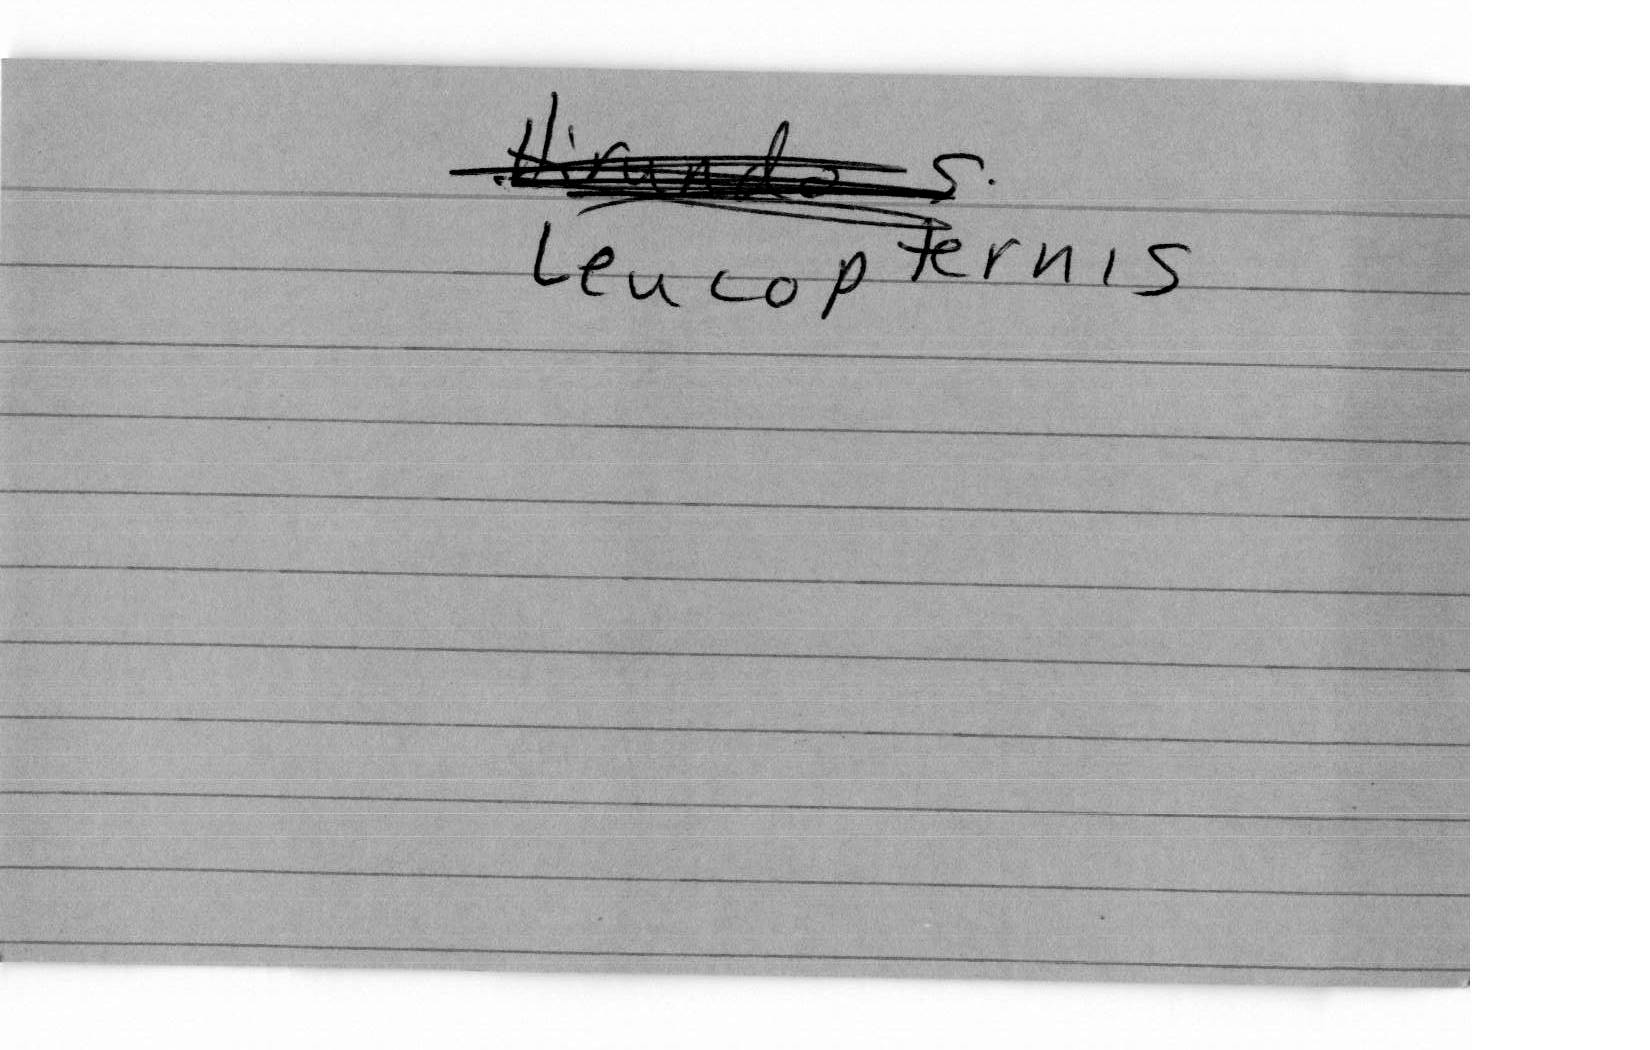 Hirundo s.
Leucopternis